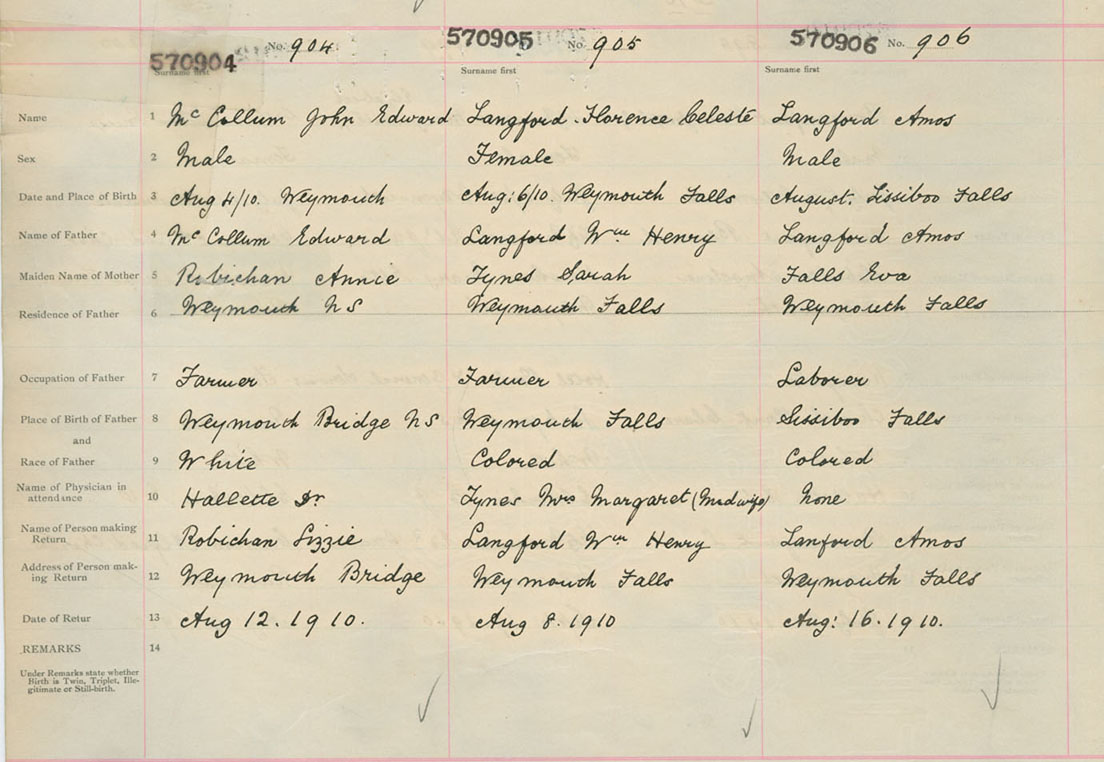 570904 No. 904 570905 No. 905 570906 No. 906
Surname first Surname first Surname first
Name 1 Mc Collum John Edward Langford - Florence Celeste Langford Amos
Sex 2 Male Female Male
Date and Place of Birth 3 Aug 4/10. Weymouth Aug: 6/10. Weymouth Falls August. Sissiboo Falls
Name of Father 4 Mc Collum Edward Langford Wm Henry Langford Amos
Maiden Name of Mother 5 Robichan Annie Tynes Sarah Falls Eva
Residence of Father 6 Weymouth N S Weymouth Falls Weymouth Falls
Occupation of Father 7 Farmer Farmer Laborer
Place of Birth of Father 8 Weymouth Bridge N S Weymouth Falls Sissiboo Falls
and
Race of Father 9 White Colored Colored
Name of Physician in
attendance 10 Hallette Dr. Tynes Mrs Margaret (Midwife) None
Name of Person making
Return 11 Robichan Lizzie Langford Wm Henry Lanford Amos
Address of Person mak-
ing Return 12 Weymouth Bridge Weymouth Falls Weymouth Falls
Date of Retur 13 Aug 12. 1910. Aug 8. 1910 Aug: 16. 1910.
REMARKS 14
Under Remarks state whether
Birth is Twin, Triplet, Ille-
gitimate or Still-birth.